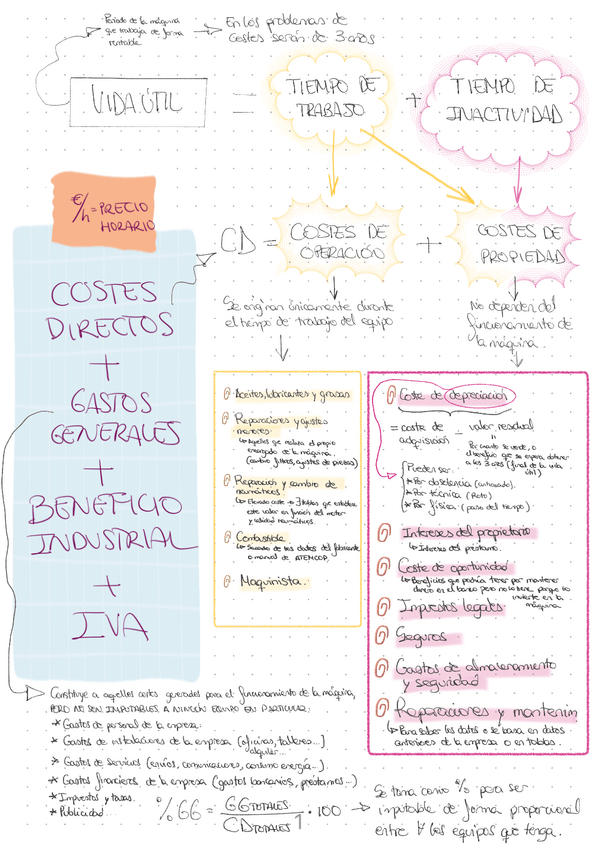 Periodo de la máquina
que trabaja de forma
rentable.
En los problemas de
costes serán de 3 años
VIDA ÚTIL
=
TIEMPO DE
TRABAJO
+
TIEMPO DE
INACTIVIDAD
€/h = PRECIO
HORARIO
CD =
COSTES DE
OPERACIÓN
+
COSTES DE
PROPIEDAD
COSTES
DIRECTOS
+
GASTOS
GENERALES
+
BENEFICIO
INDUSTRIAL
+
IVA
Se originan únicamente durante
el tiempo de trabajo del equipo
No dependen del
funcionamiento de
la máquina.
Aceites, lubricantes y grasas
Reparaciones y ajustes
menores.
Aquellos que realiza el propio
encargado de la máquina.
(cambio filtros, ajustes de piezas)
Reparación y cambio de
neumáticos
Elevado coste → 3 tablas que establece
este valor en función del motor
y calidad neumáticos.
Combustible.
de los datos del fabricante
o manual de ATEMCOP.
Maquinista.
Coste de depreciación
= coste de
adquisición - valor residual
Por cuanto se vende, o
el beneficio que se espera obtener
a los 3 años (final de la vida
útil)
Pueden ser:
* Por obsolencia (anticuado).
* Por técnica (Roto)
* Por física (paso del tiempo).
Intereses del propietario
Intereses del préstamo.
Coste de oportunidad
Beneficios que podría tener por mantener
dinero en el banco pero no lo tiene, porque lo
invierte en la
máquina.
Impuestos legales
Seguros
Gastos de almacenamiento
y seguridad
Reparaciones y mantenim
Para saber los datos o se basa en datos
anteriores de la empresa o en tablas.
Constituye a aquellos costes generados para el funcionamiento de la máquina,
PERO NO SON IMPUTABLES A NINGÚN EQUIPO EN PARTICULAR:
* Gastos de personal de la empresa.
* Gastos de instalaciones de la empresa (oficinas, talleres...)
alquiler...
* Gastos de Servicios (envíos, comunicaciones, consumo energía...).
* Gastos financieros de la empresa (gastos bancarios, préstamos...)
* Impuestos y tasas.
* Publicidad...
% GG = GG TOTALES / CD TOTALES 1 · 100
Se toma como % para ser
imputable de forma proporcional
entre ∀ los equipos que tenga.